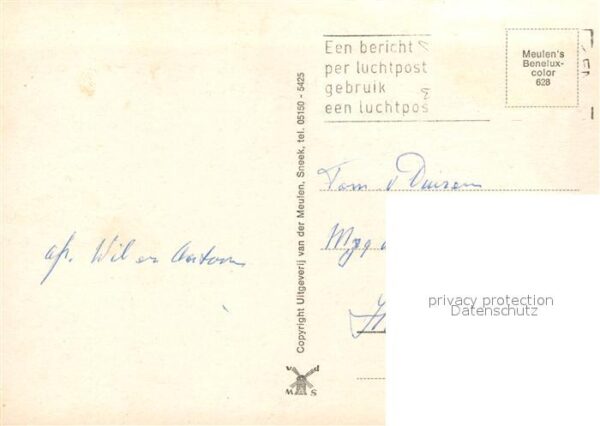 Een bericht
per luchtpost
gebruik
een luchtpos
Meulen's
Benelux-
color
628
Copyright Uitgeverij van der Meulen, Sneek, tel. 05150 - 5425
Tom v Duisen
af. Wil en Antoon
privacy protection
Datenschutz
v d
M S